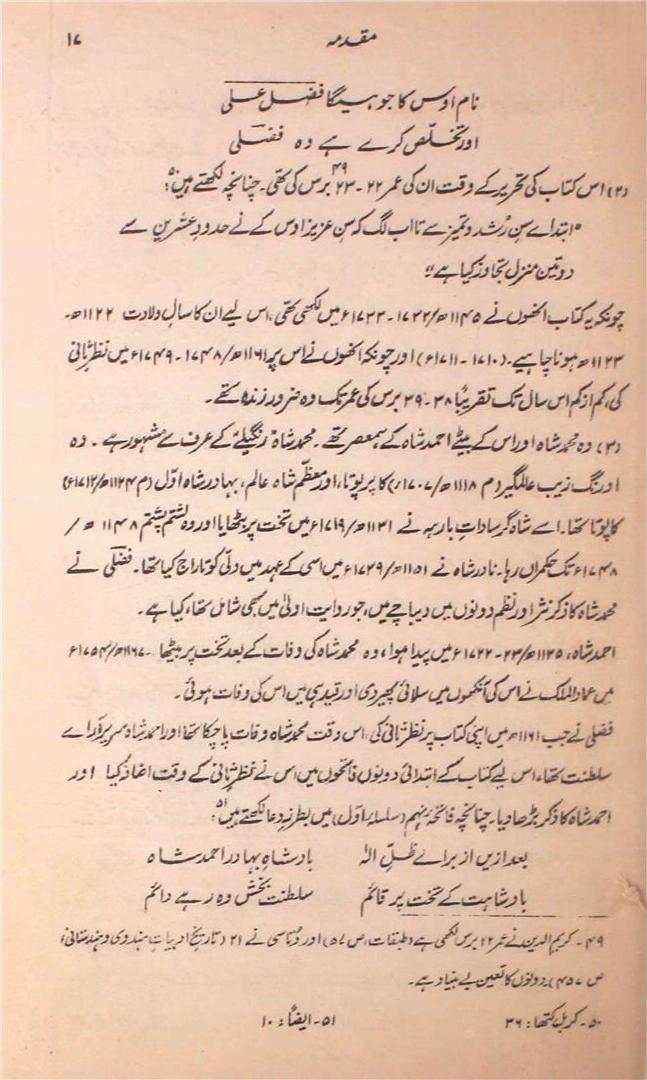 مقدمہ ۱۷
نام اوس کا جو ہیگا فضل علی
اور تخلّص کرے ہے وہ فضلی
(۲) اس کتاب کی تحریر کے وقت ان کی عمر ۲۲۔۲۳ ۴۹ برس کی تھی۔ چنانچہ لکھتے ہیں ۵۰:
"ابتداے سنِ رُشد و تمیز سے تا اب لگ کہ سِن عزیز اوس کے نے حدودِ عشرین سے
دو تین منزل تجاوز کیا ہے"
چونکہ یہ کتاب انھوں نے ۱۱۴۵ھ/۱۷۳۲۔۱۷۳۳ء میں لکھی تھی، اس لیے ان کا سالِ ولادت ۱۱۲۲ھ۔
۱۱۲۳ھ ہونا چاہیے۔ (۱۷۱۰۔۱۷۱۱ء) اور چونکہ انھوں نے اس پر ۱۱۶۱ھ/۱۷۴۸۔۱۷۴۹ء میں نظر ثانی
کی، کم از کم اس سال تک تقریباً ۳۸۔۳۹ برس کی عمر تک وہ ضرور زندہ تھے۔
(۳) وہ محمد شاہ اور اس کے بیٹے احمد شاہ کے ہمعصر تھے۔ محمد شاہ 'رنگیلے' کے عرف سے مشہور ہے۔ وہ
اورنگ زیب عالمگیر (م ۱۱۱۸ھ/۱۷۰۷ء) کا پرپوتا، اور معظّم شاہ عالم، بہادر شاہ اوّل (م ۱۱۲۴ھ/۱۷۱۲ء)
کا پوتا تھا۔ اسے شاہ گر ساداتِ بارہہ نے ۱۱۳۱ھ/۱۷۱۹ء میں تخت پر بٹھایا اور وہ لشتم پشتم ۱۱۴۸ھ/
۱۷۴۸ء تک حکمراں رہا۔ نادر شاہ نے ۱۱۵۱ھ/۱۷۳۹ء میں اسی کے عہد میں دلّی کو تاراج کیا تھا۔ فضلی نے
محمد شاہ کا ذکر نثر اور نظم دونوں میں دیباچے میں، جو روایت اولیٰ میں بھی شامل تھا، کیا ہے۔
احمد شاہ، ۱۱۳۵ھ/۲۳۔۱۷۲۲ء میں پیدا ہوا؛ وہ محمد شاہ کی وفات کے بعد تخت پر بیٹھا۔ ۱۱۶۷ھ/۱۷۵۴ء
میں عماد الملک نے اس کی آنکھوں میں سلائی پھیر دی اور قید ہی میں اس کی وفات ہوئی۔
فضلی نے جب ۱۱۶۱ھ میں اپنی کتاب پر نظر ثانی کی، اس وقت محمد شاہ وفات پا چکا تھا اور احمد شاہ سریر آراے
سلطنت تھا، اس لیے کتاب کے ابتدائی دونوں فاتحوں میں اس نے نظر ثانی کے وقت اضافہ کیا اور
احمد شاہ کا ذکر بڑھا دیا۔ چنانچہ فاتحۂ پنجم (سلسلۂ اوّل) میں بطرزِ دعا لکھتے ہیں ۵۱:
بعد ازیں از براے ظلِّ الٰہ بادشاہِ بہادر احمد شاہ
بادشاہت کے تخت پر قائم سلطنت بخش وہ رہے دائم
۴۹۔ کریم الدین نے عمر ۲۲ برس لکھی ہے (طبقات، ص ۵۷) اور دتاسی نے ۲۱ (تاریخِ ادبیاتِ ہندوی و ہندستانی،
ص ۴۵۷)؛ دونوں کا تعین بے بنیاد ہے۔
۵۰۔ کربل کتھا: ۳۶ ۵۱۔ ایضاً: ۱۰